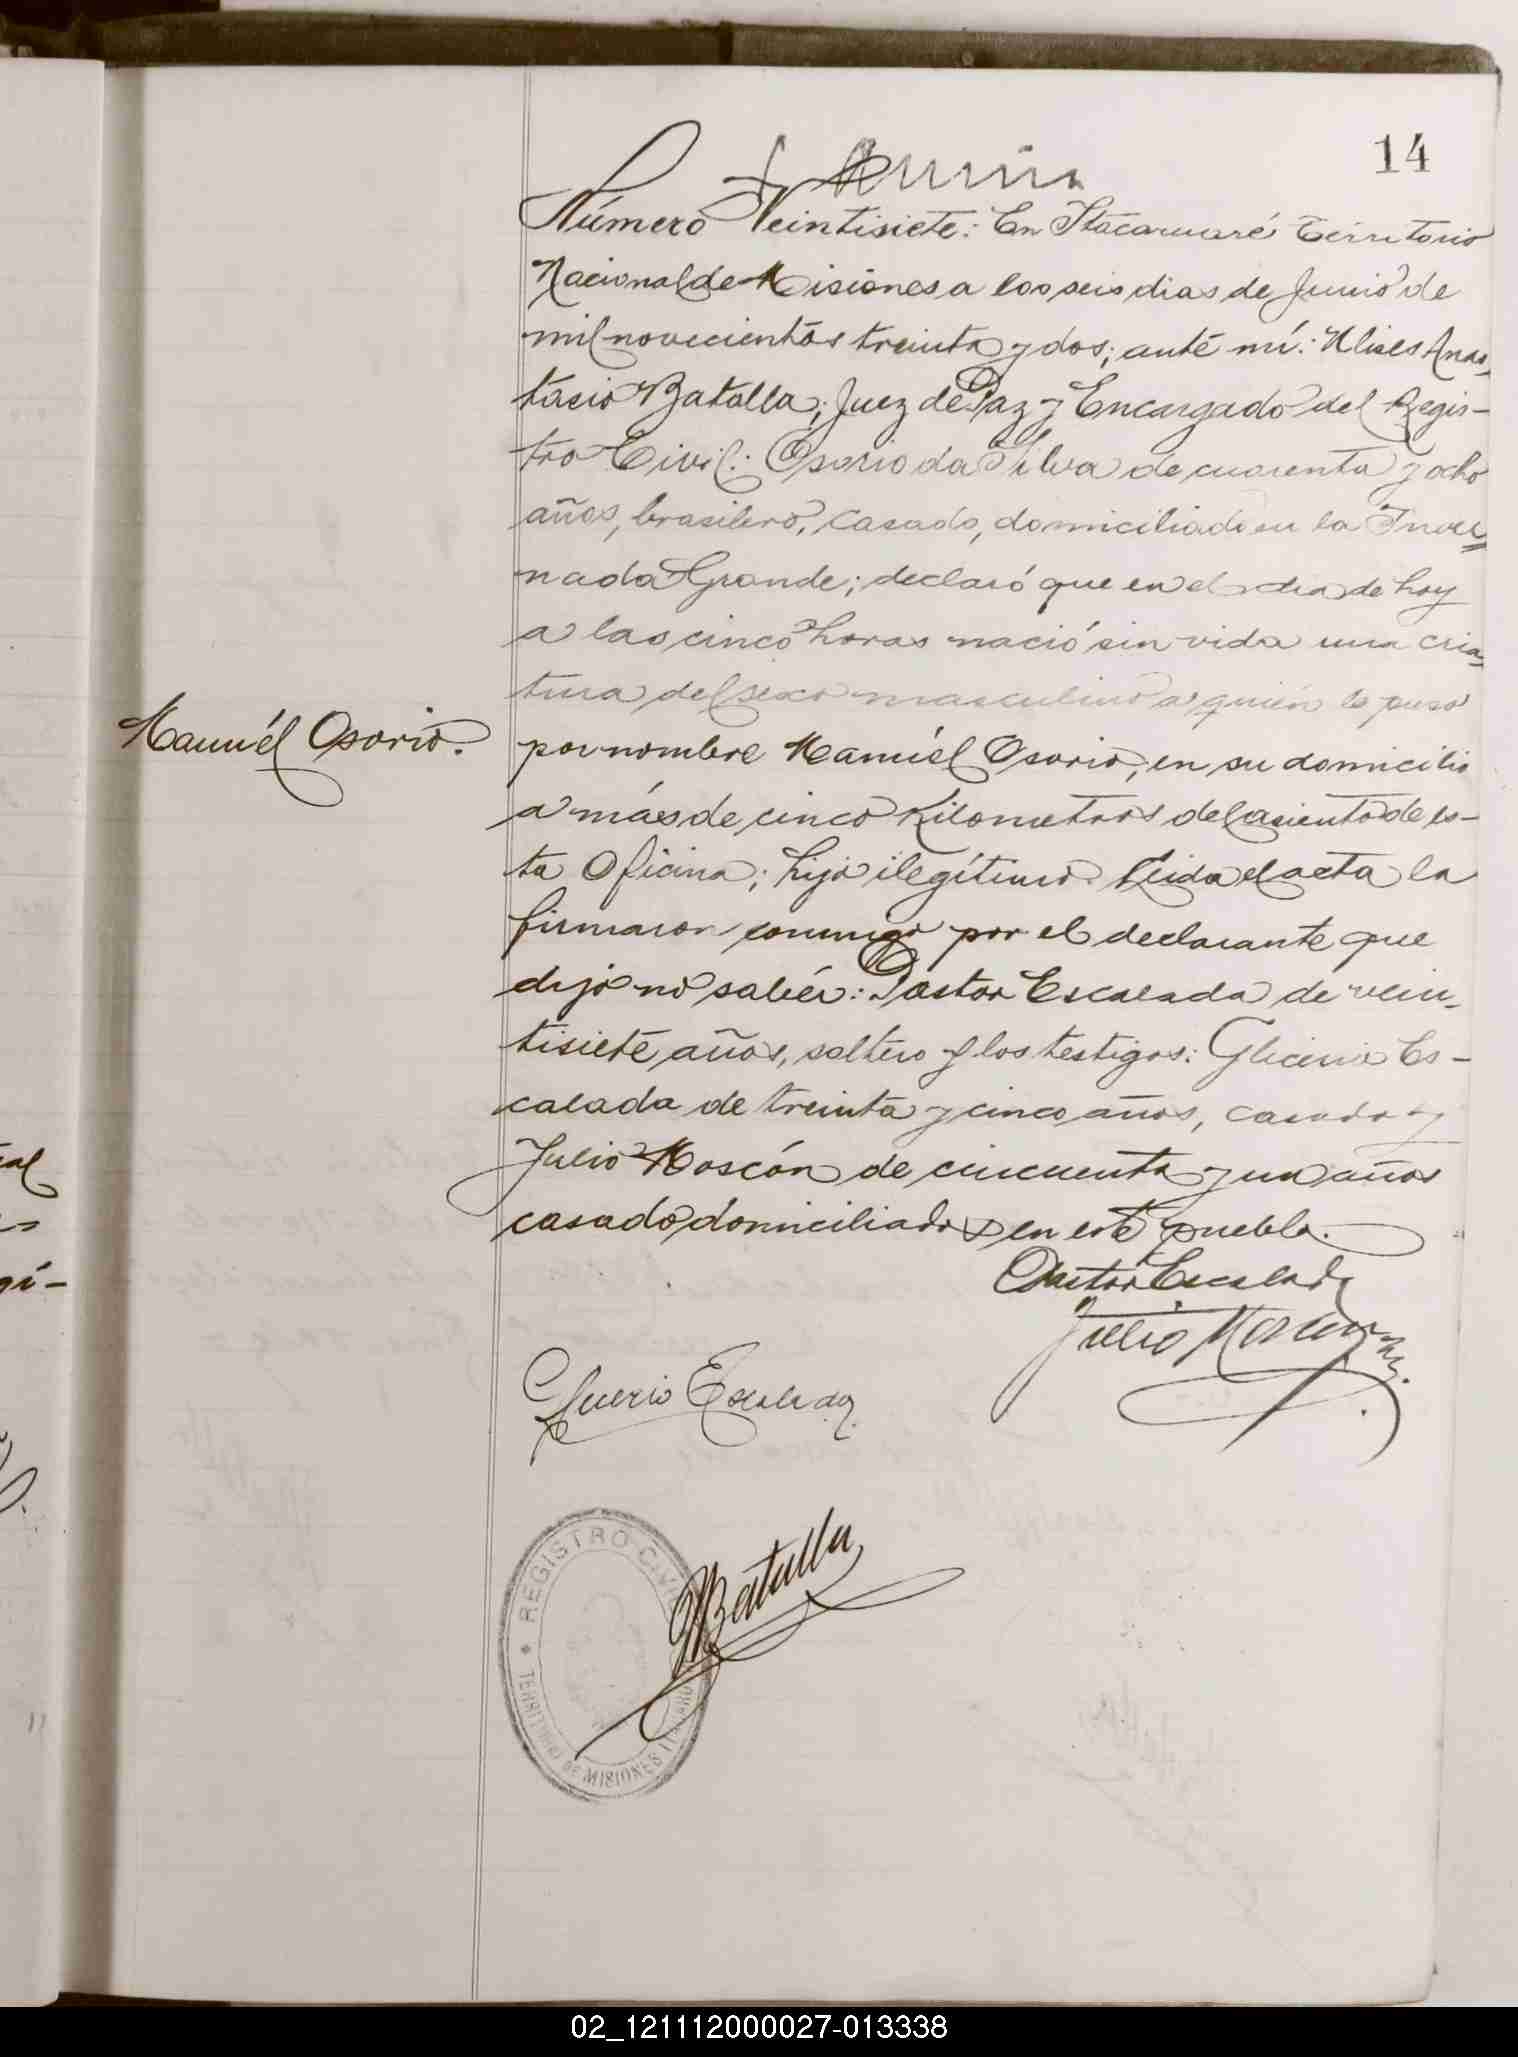 14
Número Veintisiete: En Itacaruaré Territorio
Nacional de Misiones a los seis dias de Junio de
mil novecientos treinta y dos; anté mí: Ulises Anas-
tasio Batalla; Juez de Paz y Encargado del Regis-
tro Civil: Osorio da Silva de cuarenta y ocho
años, brasilero, casado, domiciliado en la Inver-
nada Grande; declaró que en el dia de hoy
a las cinco horas nació sin vida una cria-
tura del sexo masculino a quién le puso
Manuél Osorio.
por nombre Manuél Osorio, en su domicilio
a más de cinco Kilometros del asiento de es-
ta Oficina; hijo ilegítimo. Leida el acta la
firmaron conmigo por el declarante que
dijo no sabér: Pastor Escalada de vein-
tisieté años, soltero y los testigos: Glicerio Es-
calada de treinta y cinco años, casado y
Julio Moscón de cincuenta y un años
casado domiciliados en esté pueblo.
Pastor Escalada
Julio
Glicerio Escalada
Batalla
REGISTRO CIVIL
TERRITORIO DE MISIONES
02_121112000027-013338